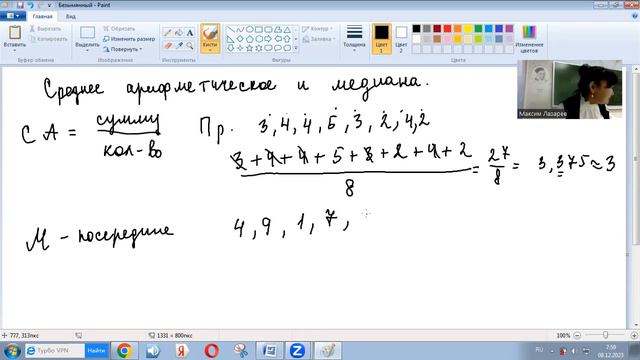 Безымянный - Paint
Главная Вид
Вставить
Выделить
Обрезать
Изменить размер
Повернуть
Кисти
Контур
Заливка
Толщина
Цвет 1
Цвет 2
Изменение цветов
Буфер обмена Изображение Инструменты Фигуры Цвета
Максим Лазарев
Среднее арифметическое и медиана.
СА = сумму / кол-во
Пр. 3, 4, 4, 5, 3, 2, 4, 2
3 + 4 + 4 + 5 + 3 + 2 + 4 + 2 / 8 = 27/8 = 3,375 ≈ 3
М - посередине 4, 9, 1, 7,
777, 313пкс 1331 × 800пкс 100%
Турбо VPN RU 7:59
08.12.2023